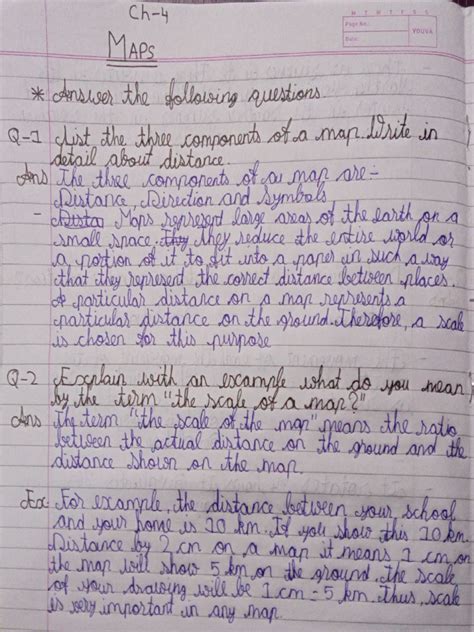 Ch-4
M T W T F S S
Page No.:
Date:
YOUVA
MAPS
* Answer the following questions.
Q-1 List the three components of a map. Write in
detail about distance.
Ans The three components of a map are:-
Distance, Direction and Symbols
- Dista Maps represent large areas of the earth on a
small space. they they reduce the entire world or
a portion of it to fit into a paper in such a way
that they represent the correct distance between places.
A particular distance on a map represents a
particular distance on the ground. Therefore, a scale
is chosen for this purpose
Q-2 Explain with an example what do you mean
by the term "the scale of a map?"
Ans The term "the scale of the map" means the ratio
between the actual distance on the ground and the
distance shown on the map.
Ex: For example, the distance between your school
and your home is 10 km. If you show this 10 km.
Distance by 2 cm on a map it means 1 cm on
the map will show 5 km on the ground. the scale
of your drawing will be 1 cm = 5 km. Thus, scale
is very important in any map.